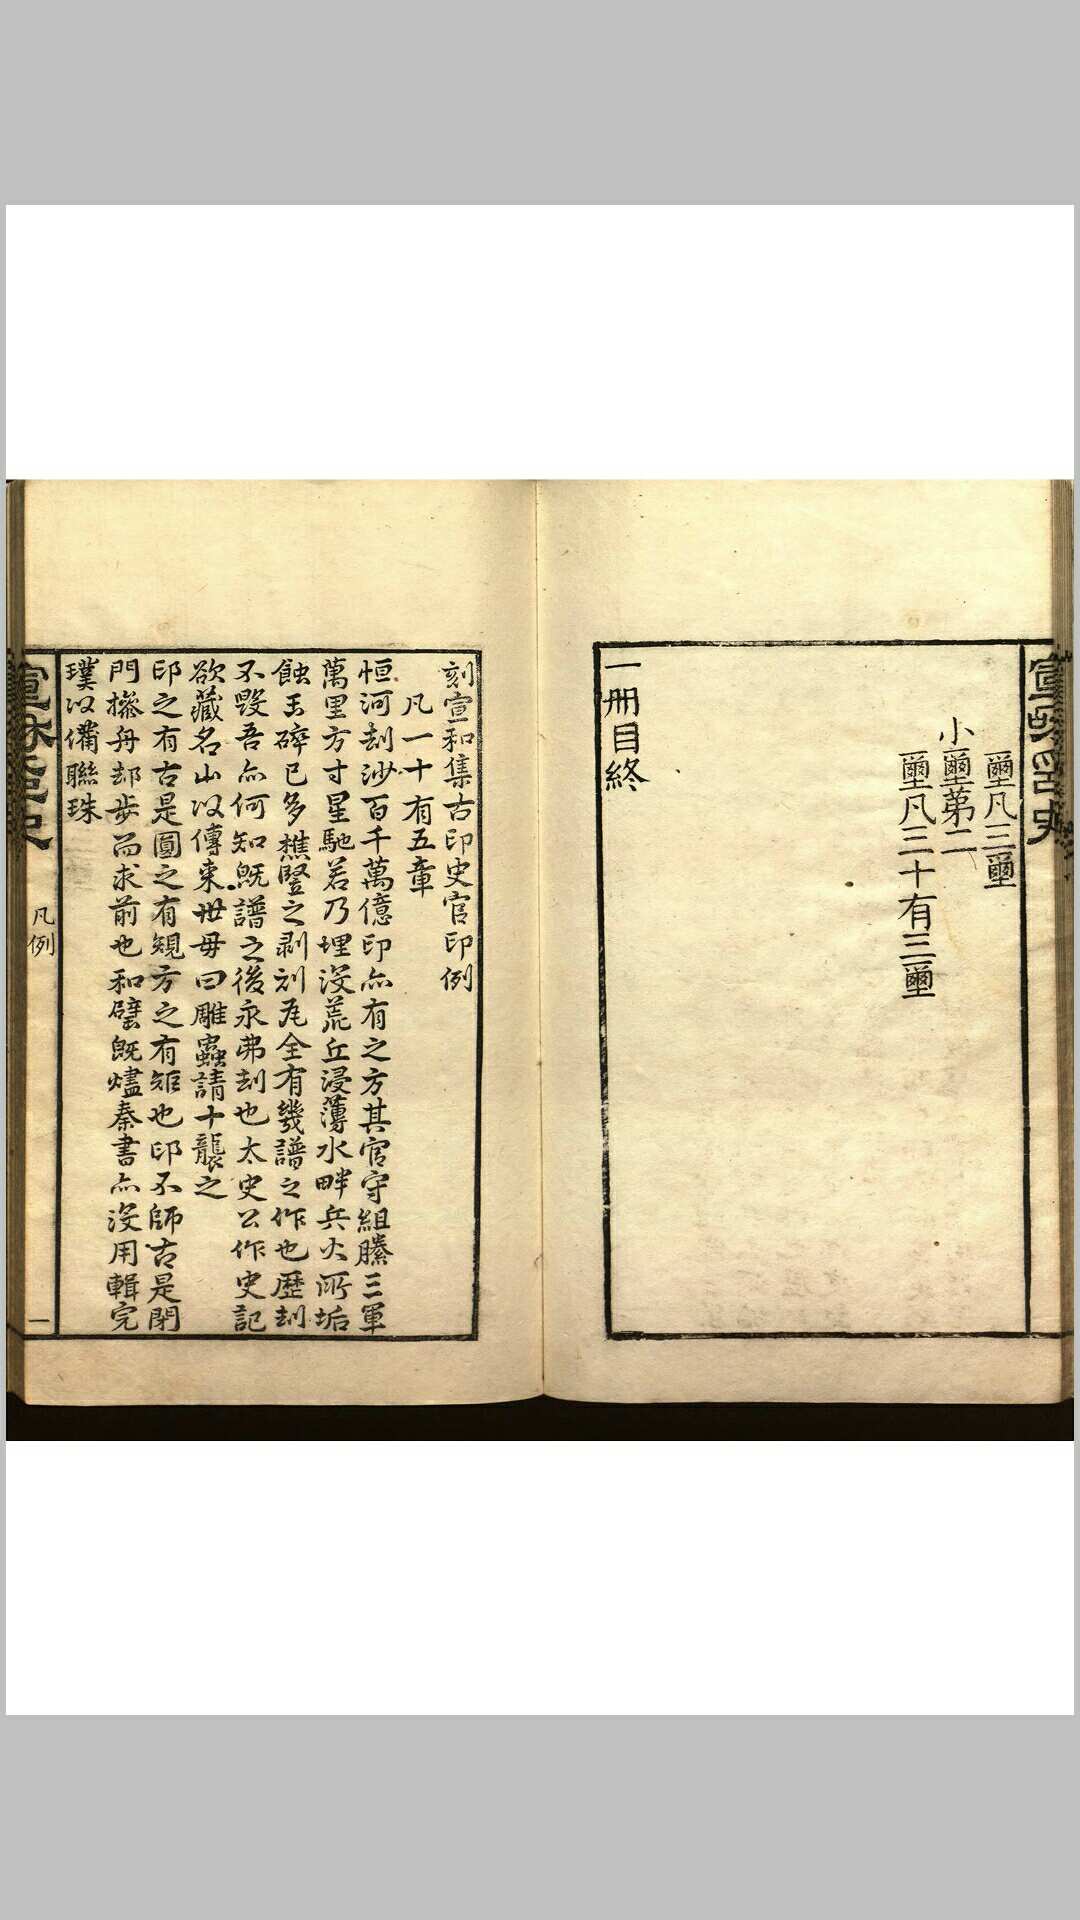 宣和印史
璽凡三璽
小璽第二
璽凡三十有三璽
一冊目終
刻宣和集古印史官印例
凡一十有五章
恒河刦沙百千萬億印亦有之方其官守組縢三軍
萬里方寸星馳若乃埋沒荒丘浸薄水畔兵火所垢
蝕玉碎已多樵豎之剥刓瓦全有幾譜之作也歷刦
不毁吾亦何知旣譜之後永弗刦也太史公作史記
欲藏名山以傳來世毋曰雕蟲請十襲之
印之有古是圓之有規方之有矩也印不師古是閉
門撡舟却步而求前也和璧旣燼秦書亦沒用輯完
璞以備聯珠
凡例
一